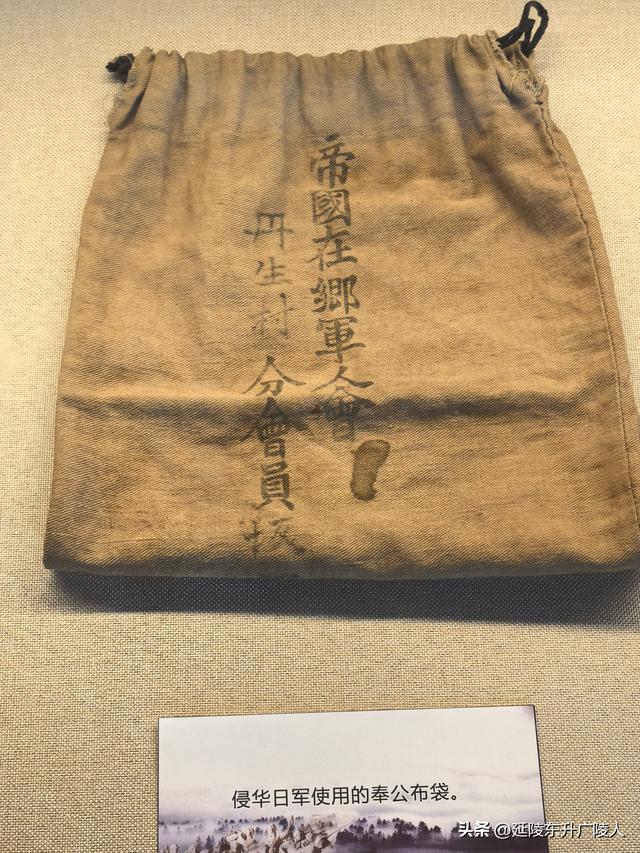 帝國在郷軍人會
丹生村分會員
侵华日军使用的奉公布袋。
头条 @延陵东升广陵人